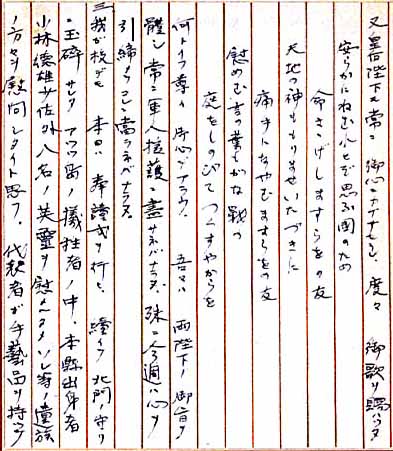 又皇后陛下モ常ニ御心ニカケサセラレ、度々御歌ヲ賜ハリタ
安らかにねむれとぞ思ふ国のため
命さゝげしますらをの友
天地の神もりませいたづきに
痛手になやむますらをの友
慰めむ言の葉もがな戦の
庭をしのびてつくすやからを
何トイフ尊イ御心デアラウ。吾々ハ両陛下ノ御旨ヲ
體シ常ニ軍人援護ニ盡サネバナラヌ。殊ニ今週ハ心ヲ
引締メテコレニ當ラネバナラヌ。
三、我が校デモ本日ハ奉讀式ヲ行ヒ、續イテ北門ノ守リ
ニ玉碎サレタアッツ島ノ犠牲者ノ中、本縣出身者
小林德雄少佐外八名ノ英靈ヲ慰メルタメソレ等ノ遺族
ノ方々ヲ慰問シタイト思フ。代表者ガ手藝品ヲ持ッテ